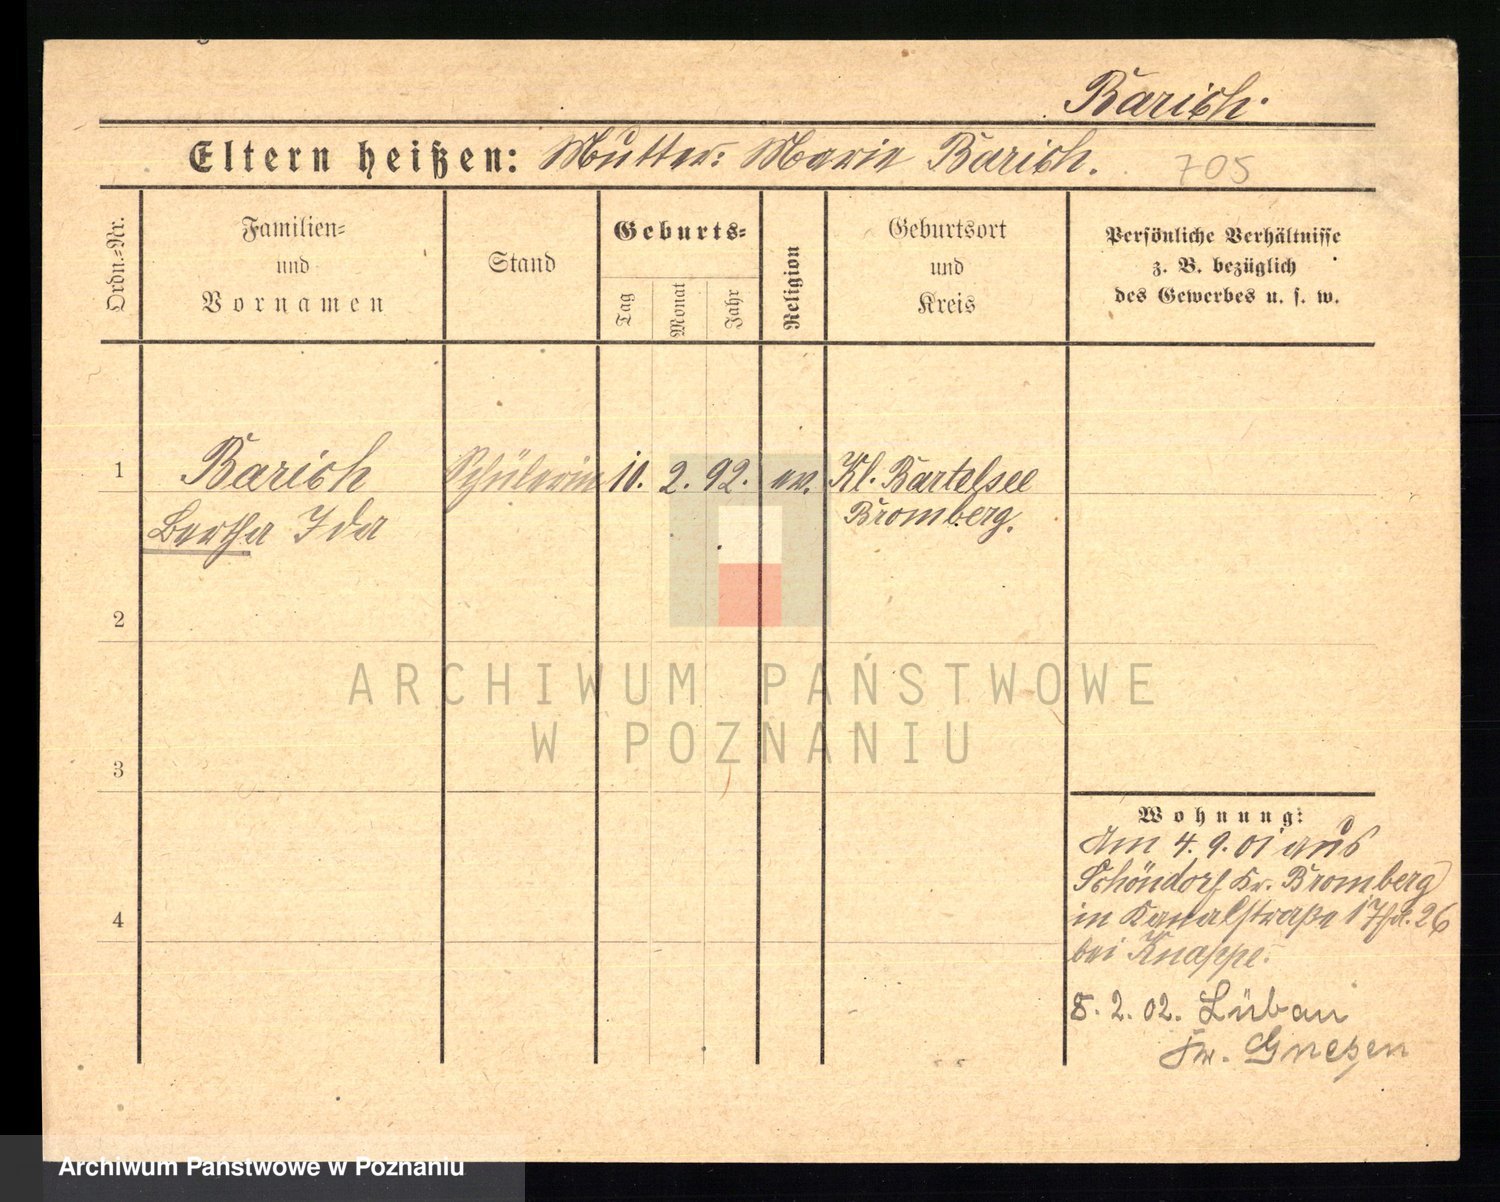 Barich.
Eltern heißen: Mutter: Marie Barich.
705
Ordn.-Nr.
Familien-
und
Vornamen
Stand
Geburts-
Tag
Monat
Jahr
Religion
Geburtsort
und
Kreis
Persönliche Verhältnisse
z. B. bezüglich
des Gewerbes u. s. w.
1 Barich Schülerin 10. 2. 92. ev. Kl. Bartelsee
Bertha Ida Bromberg.
2
3
4
Wohnung:
Am 4. 9. 01 aus
Schöndorf Kr. Bromberg
in Kanalstraße 26
bei Knappe.
8. 2. 02. Lüban
Kr. Gnesen
ARCHIWUM PAŃSTWOWE
W POZNANIU
Archiwum Państwowe w Poznaniu